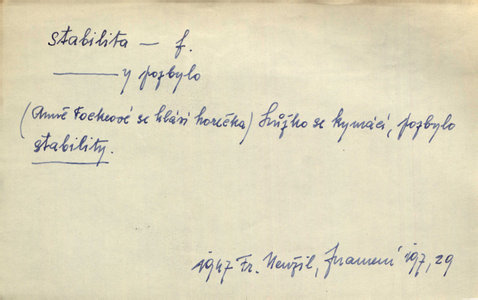 stabilita – f.
——— y pozbylo
(Anně Fockeové se hlásí horečka) Lůžko se kymácí, pozbylo
stability.
1947 Fr. Neužil, Prameni 197, 29